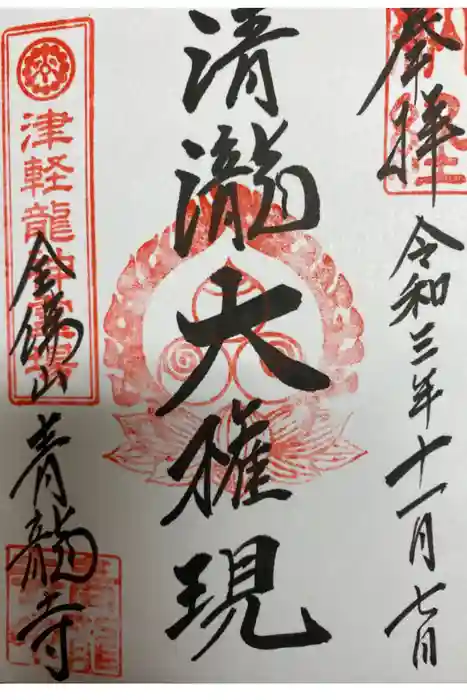 登拝
令和三年十一月七日
清瀧大権現
津軽龍神霊場
金傳山
青龍寺